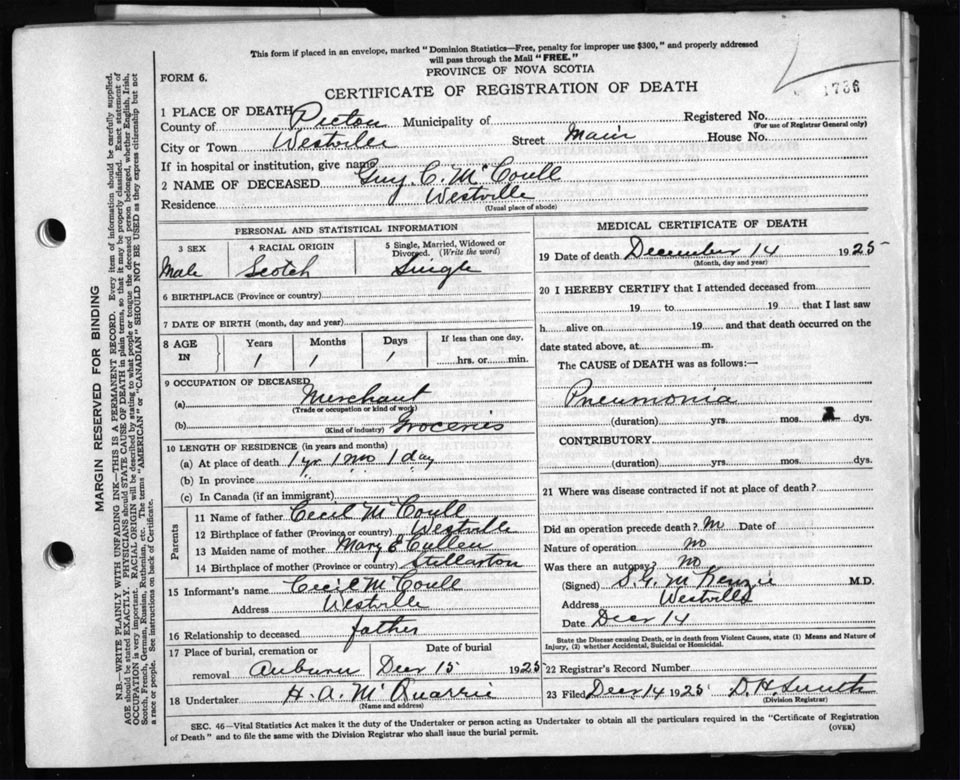 This form if placed in an envelope, marked "Dominion Statistics—Free, penalty for improper use $300," and properly addressed
will pass through the Mail "FREE."
PROVINCE OF NOVA SCOTIA
FORM 6.
CERTIFICATE OF REGISTRATION OF DEATH
1736
1 PLACE OF DEATH
County of Pictou Municipality of
Registered No.
(For use of Registrar General only)
City or Town Westville Street Main House No.
If in hospital or institution, give name
2 NAME OF DECEASED Guy. C. McCoull
Residence Westville
(Usual place of abode)
PERSONAL AND STATISTICAL INFORMATION
3 SEX 4 RACIAL ORIGIN 5 Single, Married, Widowed or
Divorced. (Write the word)
Male Scotch Single
6 BIRTHPLACE (Province or country)
7 DATE OF BIRTH (month, day and year)
8 AGE IN Years Months Days If less than one day,
1 1 1 hrs. or min.
9 OCCUPATION OF DECEASED
(a) Merchant
(Trade or occupation or kind of work)
(b) Groceries
(Kind of industry)
10 LENGTH OF RESIDENCE (in years and months)
(a) At place of death 1 yr 1 mo 1 day
(b) In province
(c) In Canada (if an immigrant)
Parents
11 Name of father Cecil McCoull
12 Birthplace of father (Province or country) Westville
13 Maiden name of mother Mary E Cullen
14 Birthplace of mother (Province or country) Stellarton
15 Informant's name Cecil McCoull
Address Westville
16 Relationship to deceased father
17 Place of burial, cremation or removal Date of burial
Auburn Decr 15 1925
18 Undertaker H. A. McQuarrie
(Name and address)
MEDICAL CERTIFICATE OF DEATH
19 Date of death December 14 1925
(Month, day and year)
20 I HEREBY CERTIFY that I attended deceased from
19 to 19 that I last saw
h alive on 19 and that death occurred on the
date stated above, at m.
The CAUSE of DEATH was as follows:—
Pneumonia
(duration) yrs. mos. dys.
CONTRIBUTORY
(duration) yrs. mos. dys.
21 Where was disease contracted if not at place of death?
Did an operation precede death? Date of
Nature of operation no
Was there an autopsy? no
(Signed) S. G. McKenzie M.D.
Address Westville
Date Decr 14
State the Disease causing Death, or in death from Violent Causes, state (1) Means and Nature of
Injury, (2) whether Accidental, Suicidal or Homicidal.
22 Registrar's Record Number
23 Filed Decr 14 1925 D. H. Smith
(Division Registrar)
SEC. 46—Vital Statistics Act makes it the duty of the Undertaker or person acting as Undertaker to obtain all the particulars required in the "Certificate of Registration
of Death" and to file the same with the Division Registrar who shall issue the burial permit.
(OVER)
MARGIN RESERVED FOR BINDING
N.B.—WRITE PLAINLY WITH UNFADING INK—THIS IS A PERMANENT RECORD. Every item of information should be carefully supplied.
AGE should be stated EXACTLY. PHYSICIANS should STATE CAUSE OF DEATH in plain terms, so that it may be properly classified. Exact statement of
OCCUPATION is very important. RACIAL ORIGIN will be described by stating to what people or tongue the deceased person belonged, whether English, Irish,
Scotch, French, German, Russian, Ruthenian, etc. The terms "AMERICAN" or "CANADIAN" SHOULD NOT BE USED as they express citizenship but not
a race or people. See instructions on back of Certificate.